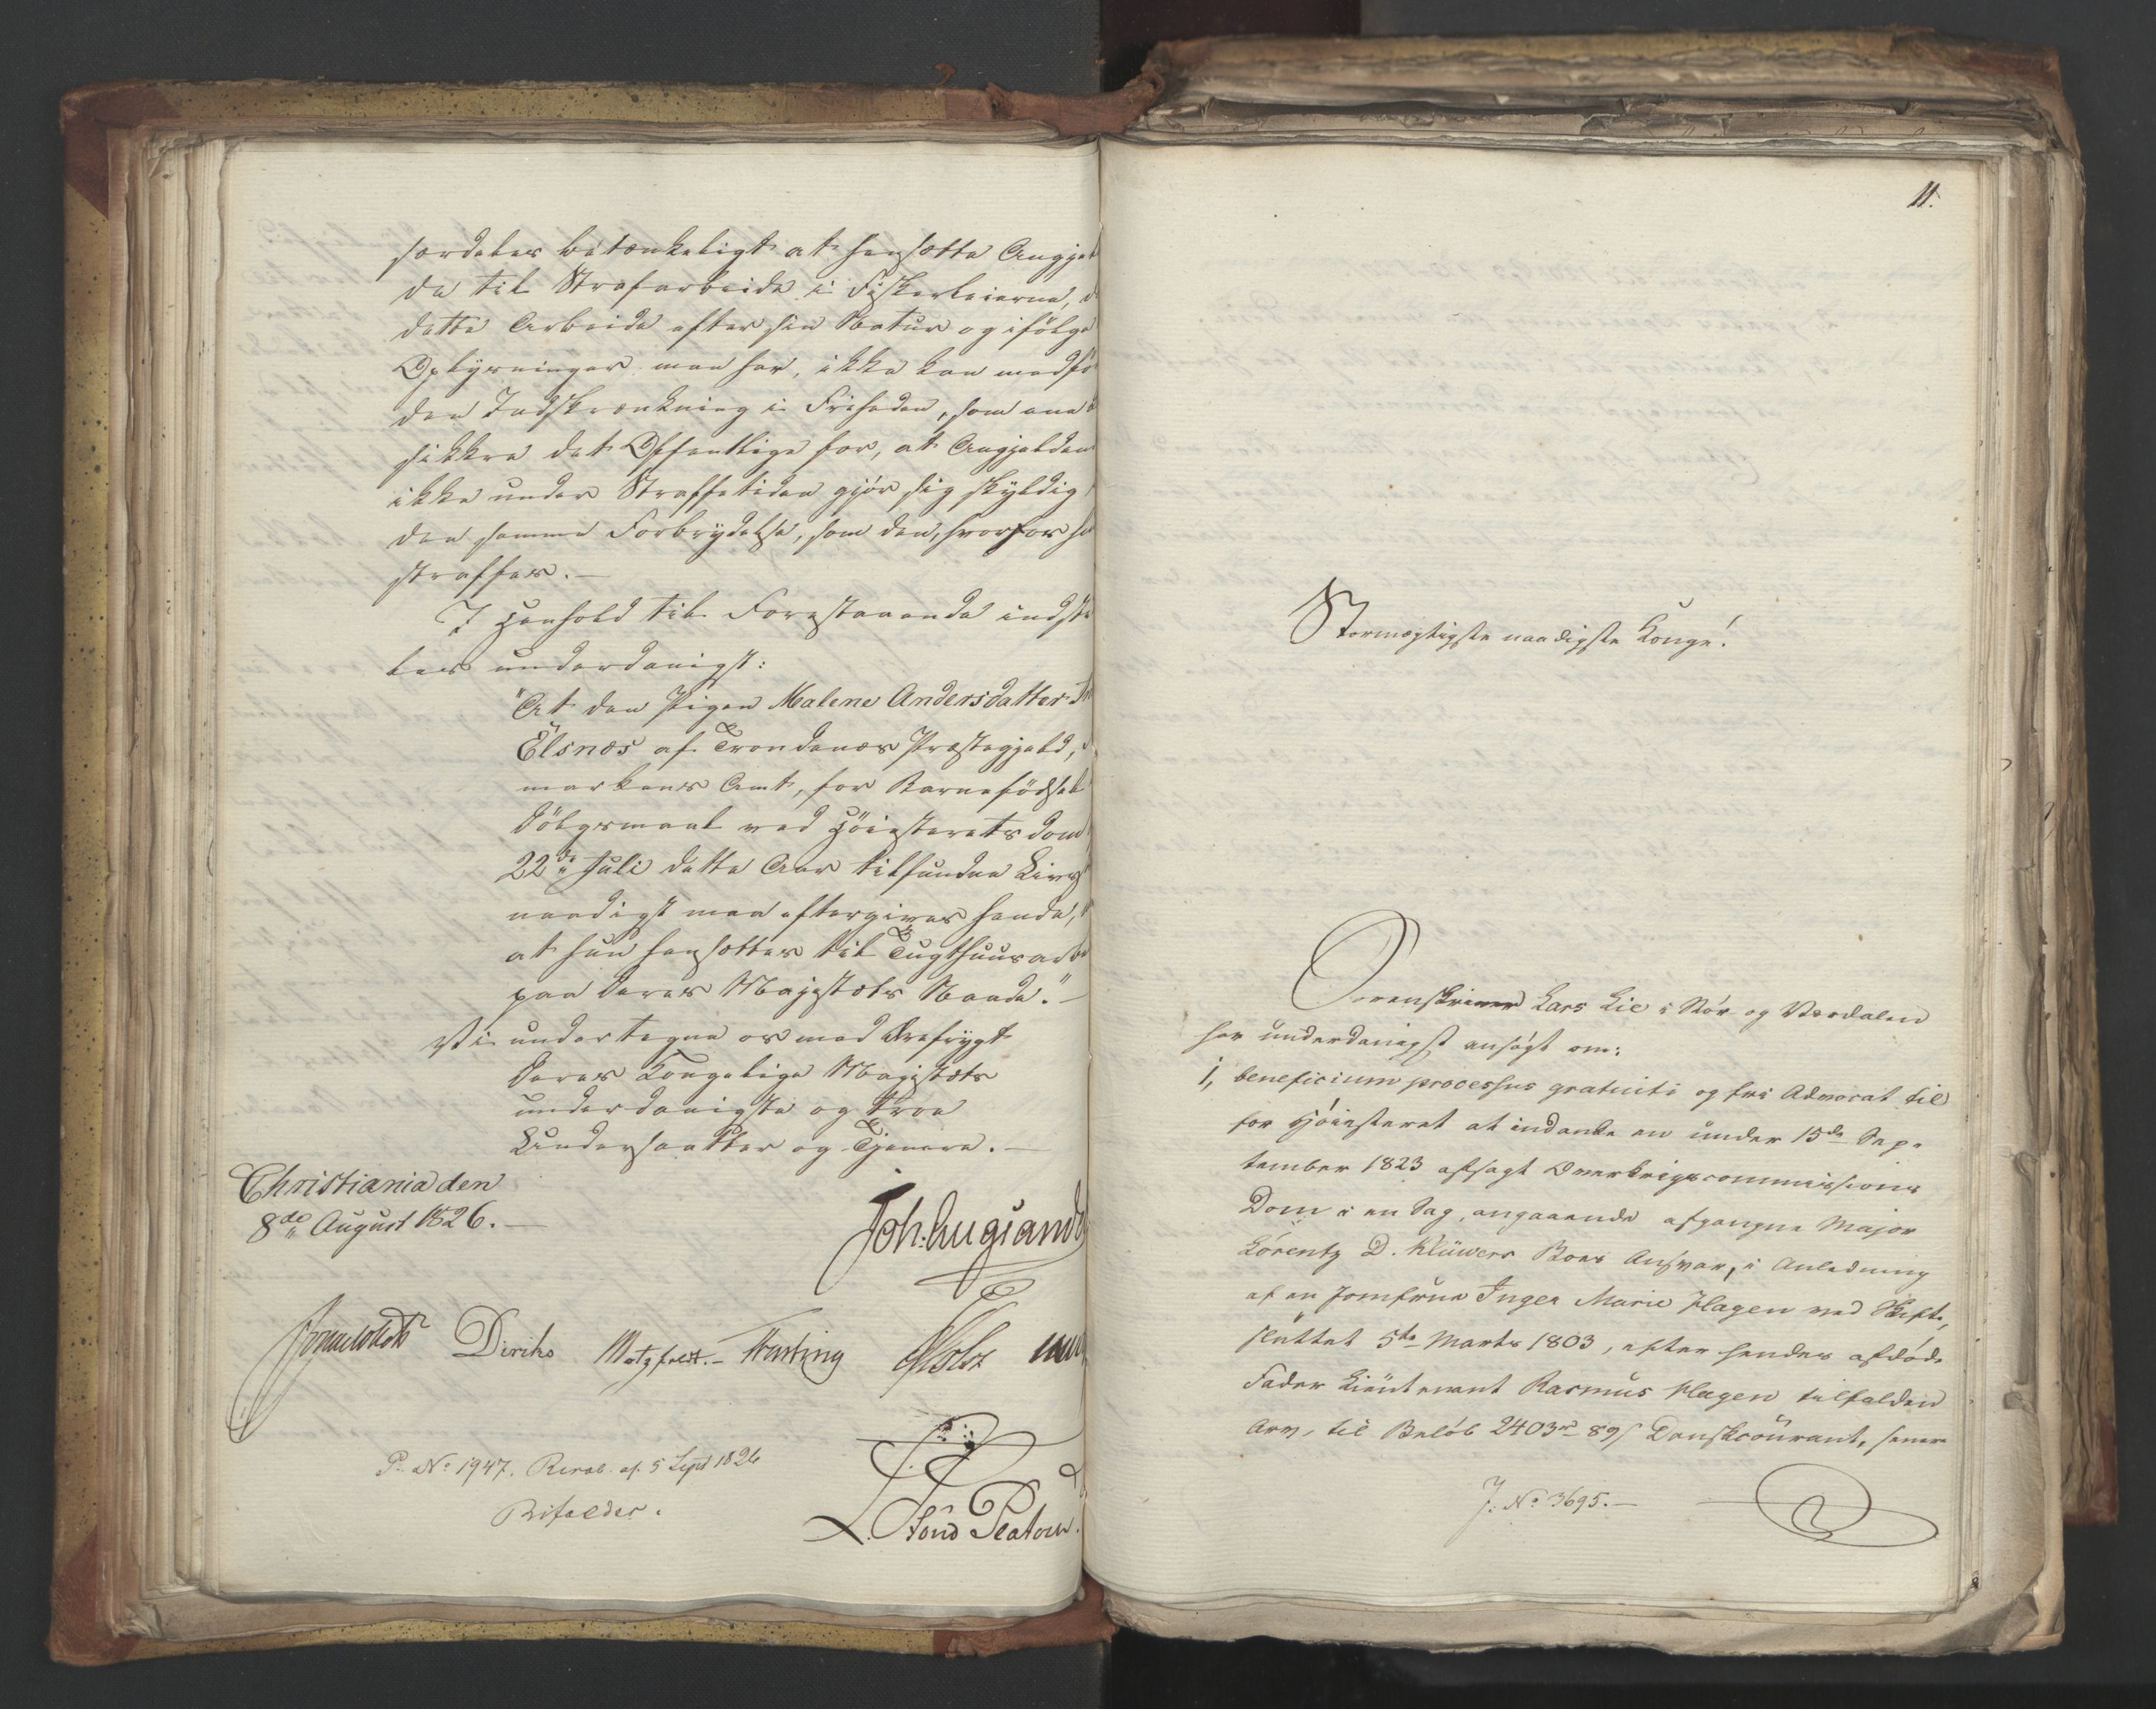 særdeles betænkeligt at hensætte Angjel
de til Strafarbeide i Fiskerleierne, d
dette Arbeide efter sin Natur og ifölge
Oplysninger man har, ikke kan medfö
den Indskrænkning i Friheden, som ene
sikkre det Offentlige for, at Angjelden
ikke under Straffetiden gjör sig skyldig
den samme Forbrydelse, som den, hvorfor h
straffes.—
I Henhold til Forestaaende indstil
les underdanigst:
"At den Pigen Malene Andersdatter
Elsnæs af Trondenæs Præstegjeld,
markens Amt, for Barnefödsel
Dölgsmaal ved Höiesterets Dom
22de Juli dette Aar tilfundne Livs
naadigst maa eftergives hende,
at hun hensættes til Tugthuusarbe
paa Deres Majestæts Naade."—
Vi undertegne os med Ærefrygt
Deres Kongelige Majestæts
underdanigste og troe
Undersaatter og Tjenere.—
Christiania den
8de August 1826.—
Joh: Aug: Sand
Diriks Motzfeldt.— Fasting Holst
P. No 1947. Resol. af 5 Sept 1826
Bifaldes.
L. Stoud Platou.
11.
Stormægtigste naadigste Konge!
Sorenskriver Lars Lie i Stör og Værdalen
har underdanigst ansögt om:
1, beneficium processus gratuiti og frie Advocat til
for Höiesteret at indanke en under 15de Sep-
tember 1823 afsagt Overkrigscommissions
Dom i en Sag, angaaende afgangne Major
Lorentz D. Klüwers Boes Ansvar, i Anledning
af en Jomfrue Inger Marie Hagen ved Skifte,
sluttet 5te Marts 1803, efter hendes afdöde
Fader Lieutenant Rasmus Hagen tilfalden
Arv, til Belöb 2403rd 89s Danskcourant, hvor
J. No 3695.—